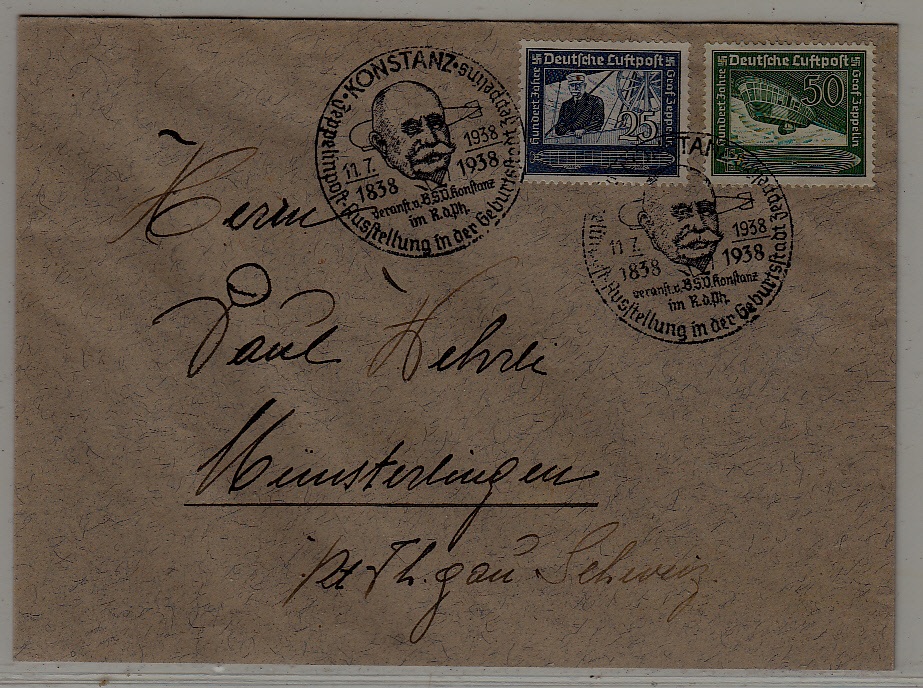 KONSTANZ · Zeppelinpost-Ausstellung in der Geburtsstadt Zeppelins ·
11.7. 1938
1838 1938
Veranst. v. B.S.V. Konstanz
im R.d.Ph.
Deutsche Luftpost
Hundert Jahre
Graf Zeppelin
25
Deutsche Luftpost
Hundert Jahre
Graf Zeppelin
50
Zeppelinpost-Ausstellung in der Geburtsstadt
11.7. 1938
1838 1938
Veranst. v. B.S.V. Konstanz
im R.d.Ph.
Herrn
Paul Wehrli
Münsterlingen
Kt Th.gau Schweiz.